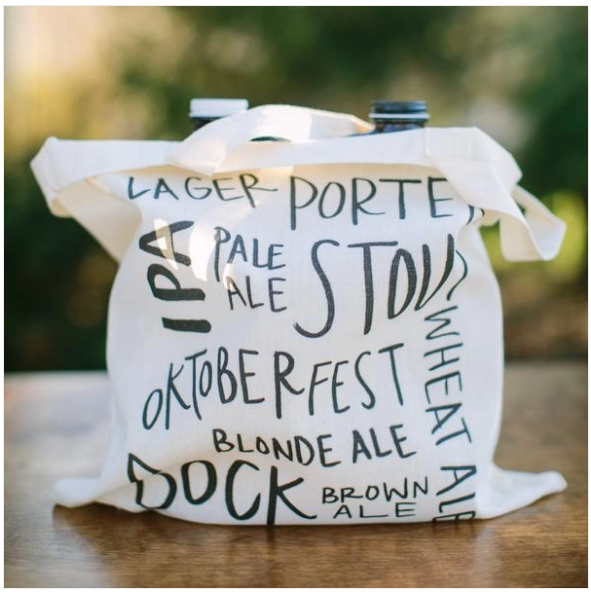 LAGER PORTE
IPA
PALE
ALE
STOU
WHEAT ALE
OKTOBERFEST
BLONDE ALE
BOCK
BROWN
ALE